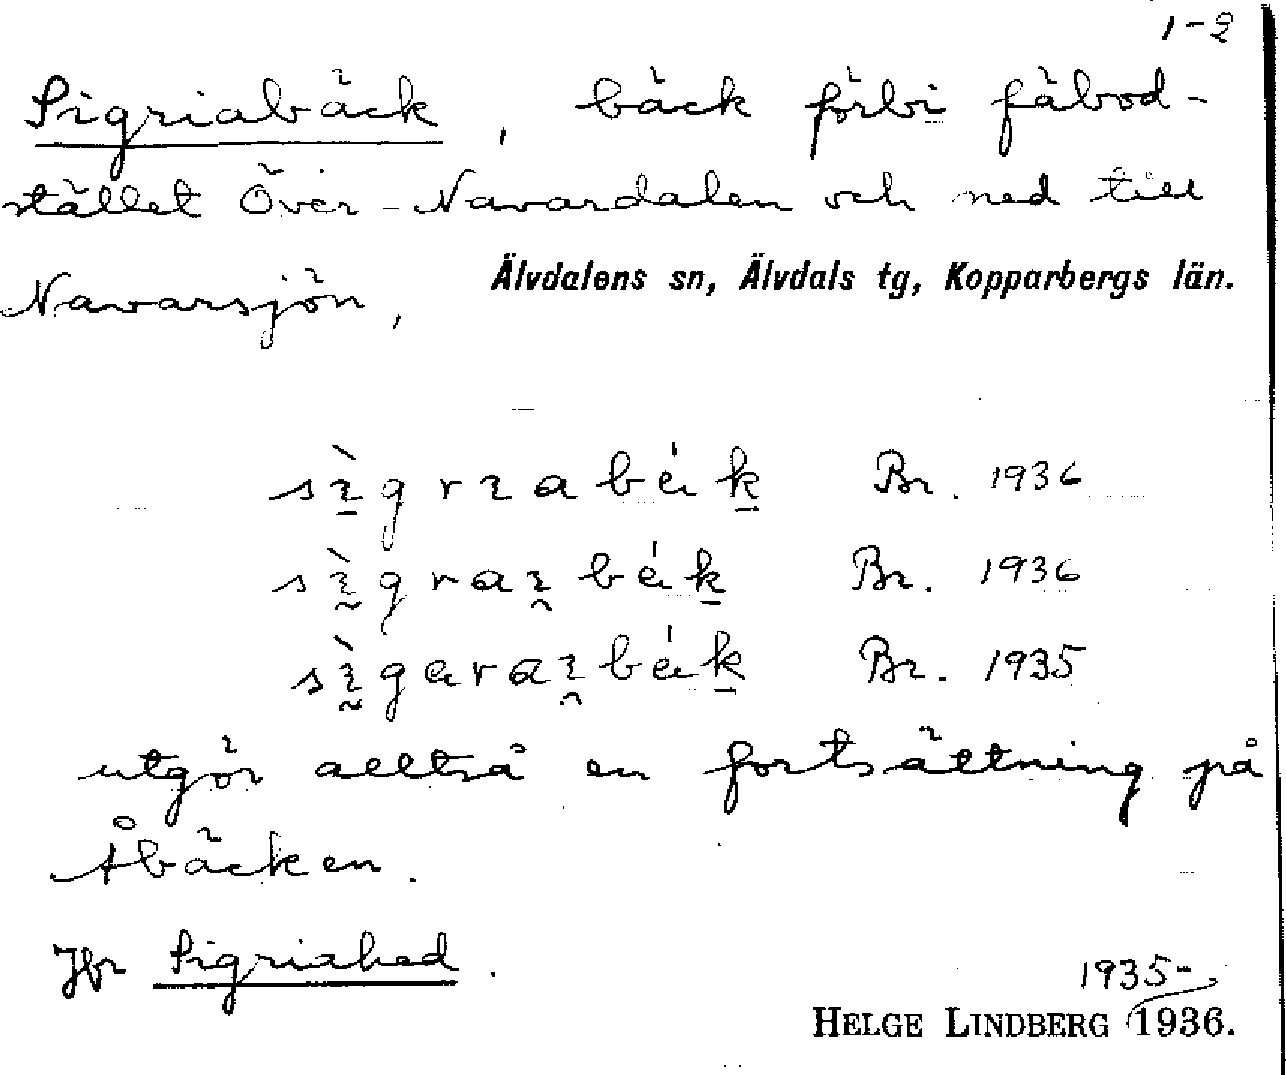 1-2
Sigriabäck, bäck förbi fäbod-
stället Över-Navardalen och ned till
Navarsjön, Älvdalens sn, Älvdals tg, Kopparbergs län.
Br. 1936
Br. 1936
Br. 1935
utgör alltså en fortsättning på
Åbäcken.
Jfr Sigriahed.
1935-
HELGE LINDBERG 1936.